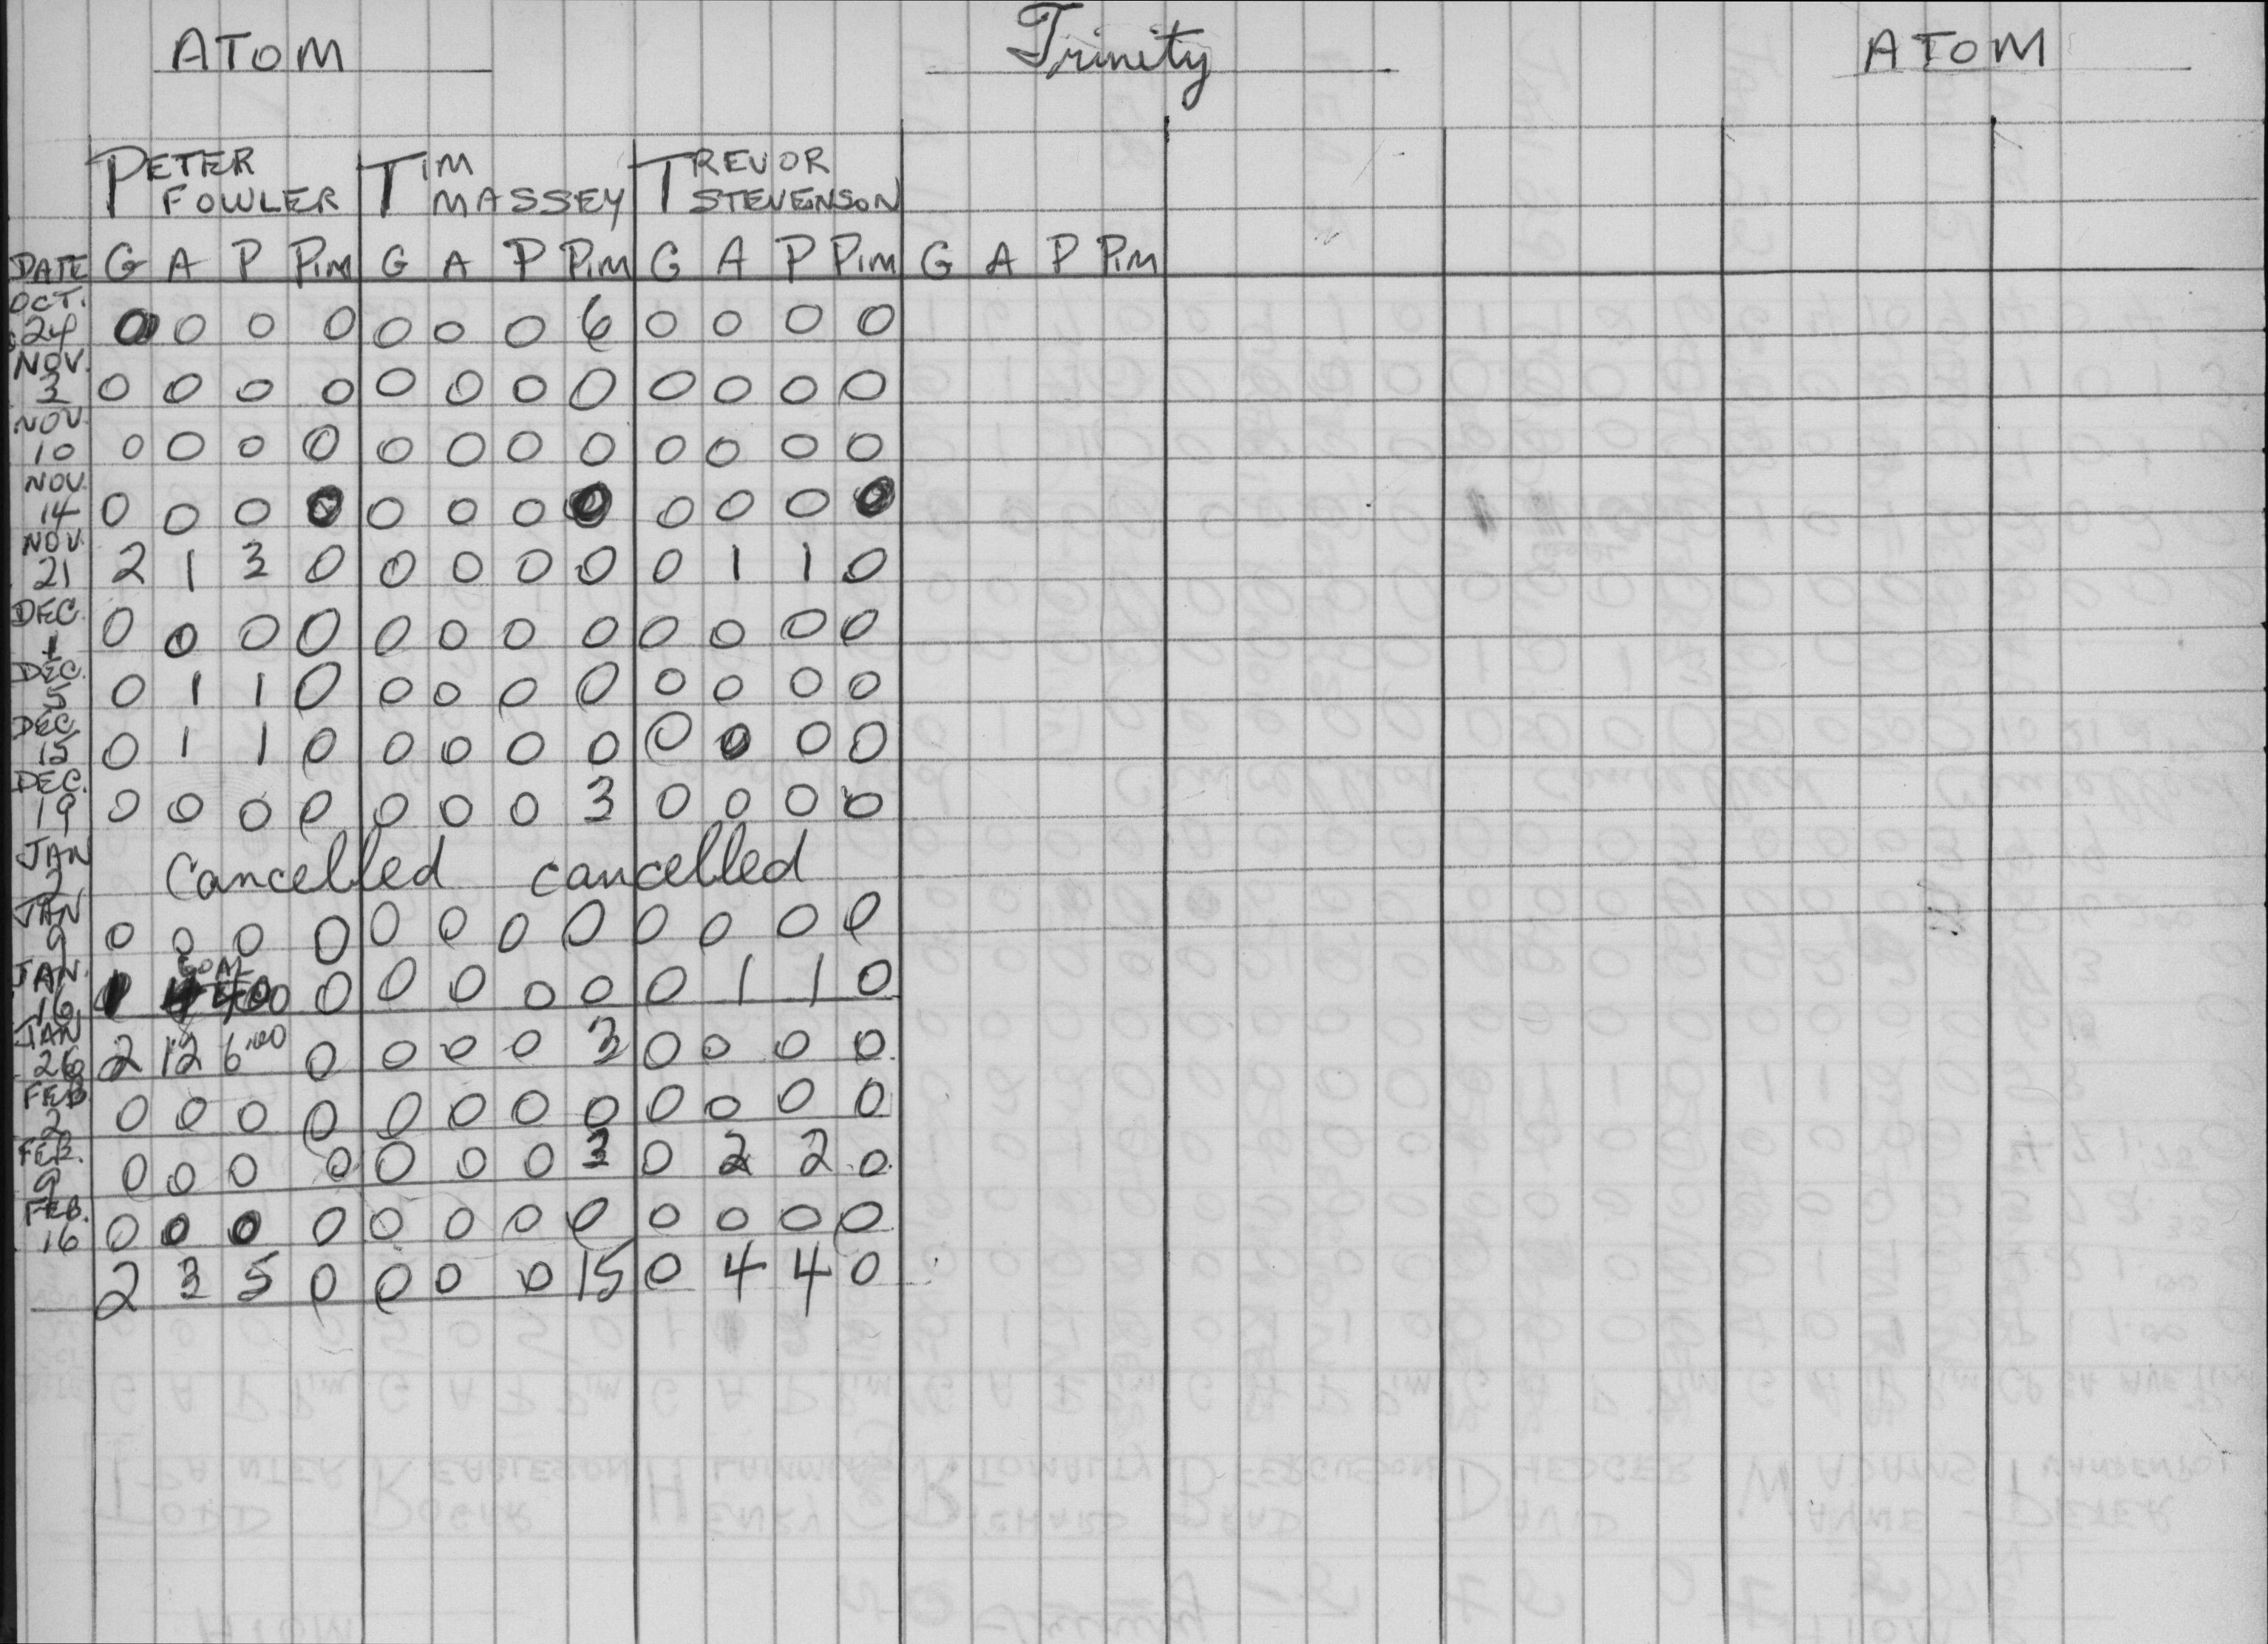 ATOM Trinity ATOM
PETER FOWLER TIM MASSEY TREVOR STEVENSON
DATE G A P PIM G A P PIM G A P PIM G A P PIM
OCT. 24 0 0 0 0 0 0 0 6 0 0 0 0
NOV. 3 0 0 0 0 0 0 0 0 0 0 0 0
NOV. 10 0 0 0 0 0 0 0 0 0 0 0 0
NOV. 14 0 0 0 0 0 0 0 0 0 0 0 0
NOV. 21 2 1 3 0 0 0 0 0 0 1 1 0
DEC. 1 0 0 0 0 0 0 0 0 0 0 0 0
DEC. 5 0 1 1 0 0 0 0 0 0 0 0 0
DEC. 15 0 1 1 0 0 0 0 0 0 0 0 0
DEC. 19 0 0 0 0 0 0 0 3 0 0 0 0
JAN 2 Cancelled cancelled
JAN 9 0 0 0 0 0 0 0 0 0 0 0 0
JAN. 16 GOAL 0 0 0 0 0 0 1 1 0
JAN 26 2 12 6.00 0 0 0 0 3 0 0 0 0
FEB 2 0 0 0 0 0 0 0 0 0 0 0 0
FEB. 9 0 0 0 0 0 0 0 3 0 2 2 0
FEB. 16 0 0 0 0 0 0 0 0 0 0 0 0
2 3 5 0 0 0 0 15 0 4 4 0